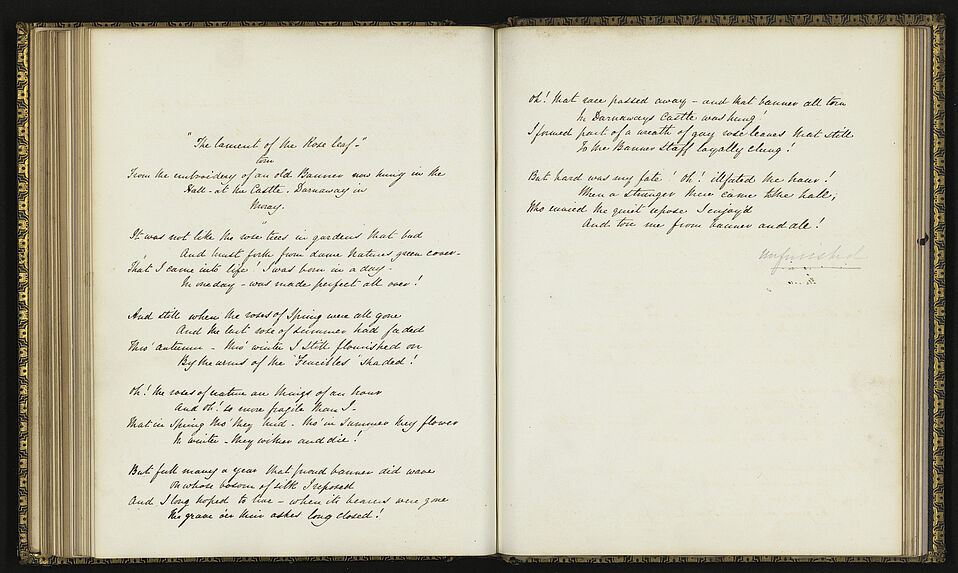 "The lament of the Rose leaf-"
torn
From the embroidery of an old Banner now hung in the
Hall - at the Castle. Darnaway in
Moray.
"
It was not like the rose trees in gardens that bud
And burst forth from dame Natures green cover-
That I came into life! I was born in a day-
In one day - was made perfect all over!
And still when the roses of Spring were all gone
And the last rose of summer had faded
Thro' autumn - thro' winter I still flourished on
By the arms of the 'Fencibles' shaded!
Oh! the roses of nature are things of an hour
And oh! so more fragile than I-
That in Spring tho' they bud - tho' in summer they flower
In winter - they wither and die!
But full many a year that proud banner did wave
On whose bosom of silk I reposed
And I long hoped to live - when its bearers were gone
The grave o'er their ashes long closed!
Oh! that race passed away - and that banner all torn
In Darnaways Castle was hung!
I formed part of a wreath of gay rose leaves that still
To the Banner Staff loyally clung!
But hard was my fate! oh! illfated the hour!
When a stranger there came to the hall;
Who envied the quiet repose I enjoy'd
And tore me from banner and all!
unfinished